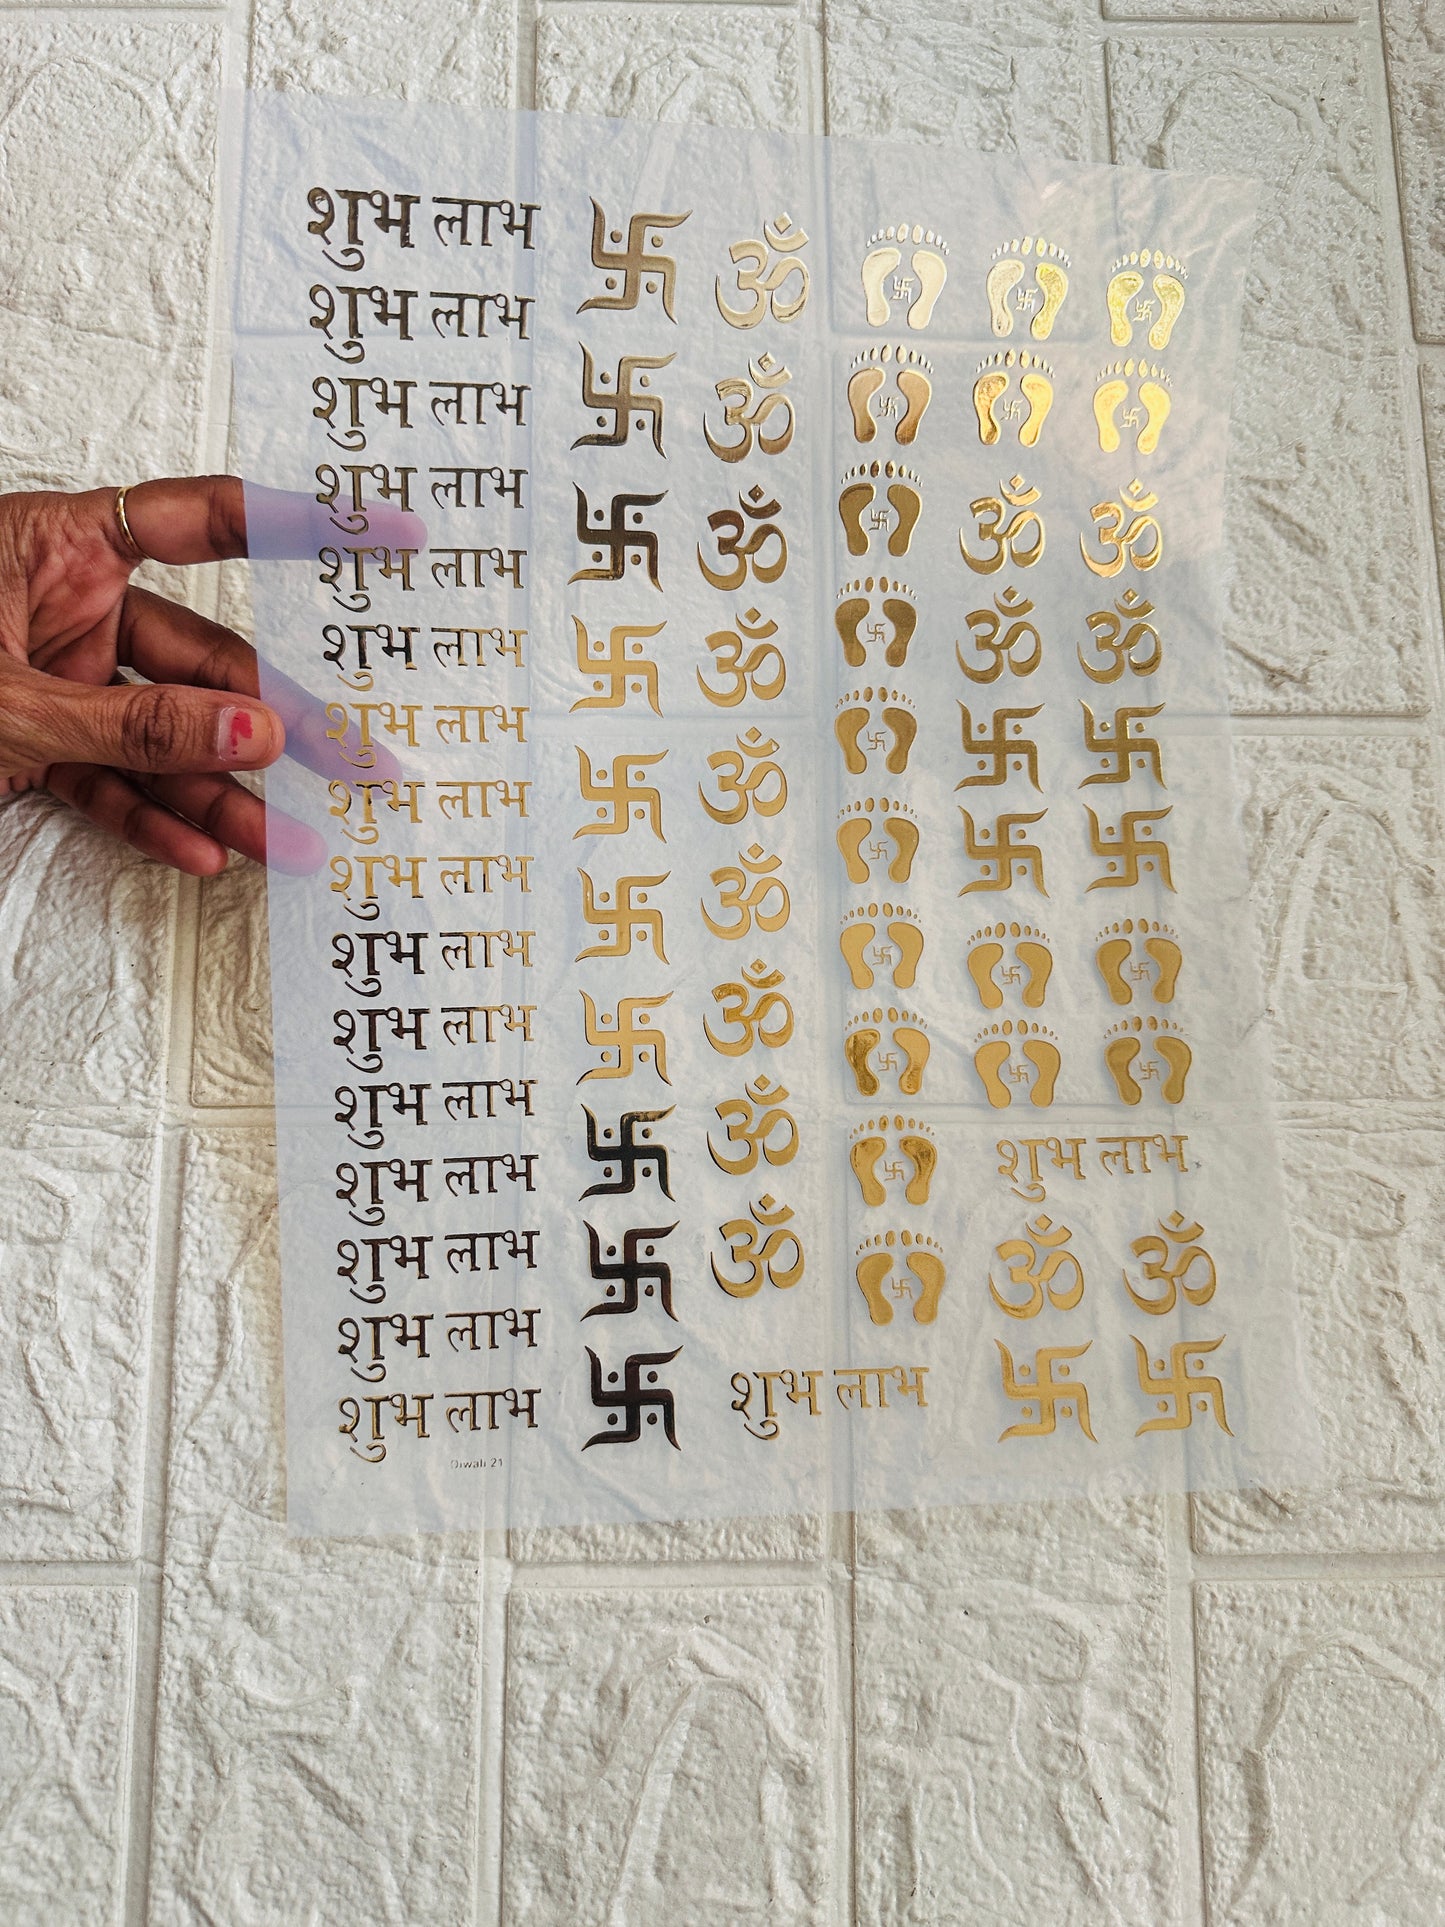 शुभ लाभ ॐ
शुभ लाभ
शुभ लाभ ॐ
शुभ लाभ
शुभ लाभ ॐ ॐ ॐ
शुभ लाभ ॐ ॐ ॐ
शुभ लाभ
शुभ लाभ ॐ
शुभ लाभ ॐ
शुभ लाभ
शुभ लाभ ॐ
शुभ लाभ ॐ
शुभ लाभ शुभ लाभ
शुभ लाभ ॐ ॐ ॐ
शुभ लाभ
शुभ लाभ शुभ लाभ
Diwali 21